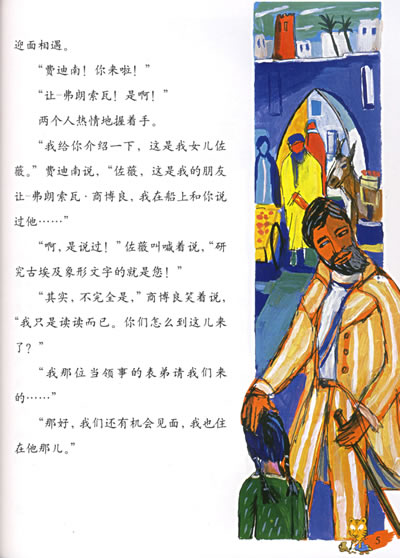 迎面相遇。
“费迪南!你来啦!”
“让-弗朗索瓦!是啊!”
两个人热情地握着手。
“我给你介绍一下,这是我女儿佐
薇。”费迪南说,“佐薇,这是我的朋友
让-弗朗索瓦·商博良,我在船上和你说
过他……”
“啊,是说过!”佐薇叫喊着说,“研
究古埃及象形文字的就是您!”
“其实,不完全是,”商博良笑着说,
“我只是读读而已。你们怎么到这儿来
了?”
“我那位当领事的表弟请我们来
的……”
“那好,我们还有机会见面,我也住
在他那儿。”
5